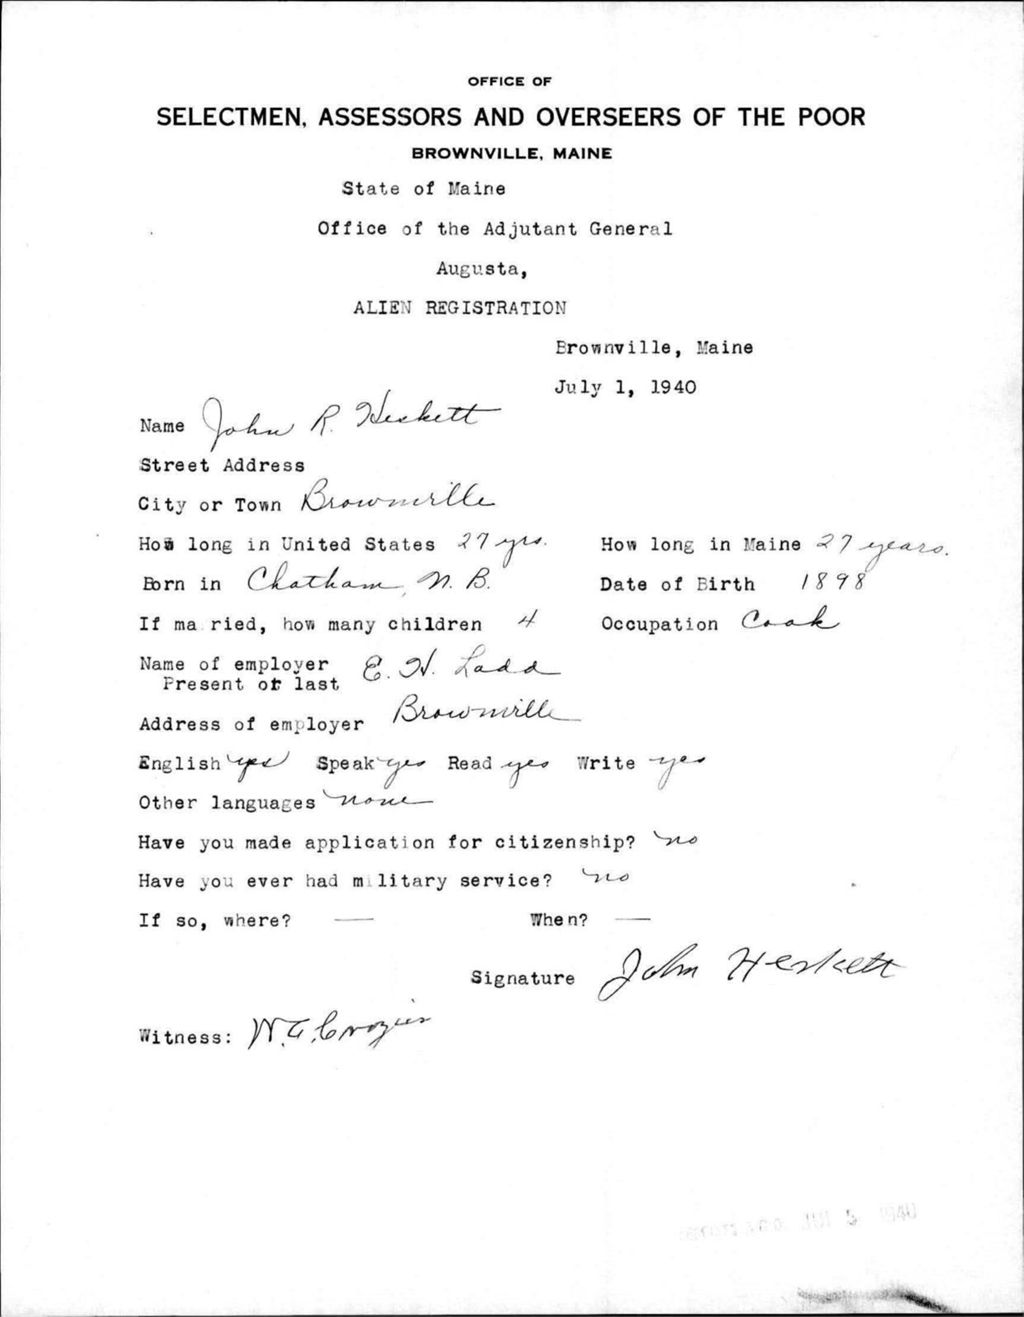 OFFICE OF
SELECTMEN, ASSESSORS AND OVERSEERS OF THE POOR
BROWNVILLE, MAINE
State of Maine
Office of the Adjutant General
Augusta,
ALIEN REGISTRATION
Brownville, Maine
July 1, 1940
Name John R. Heskett
Street Address
City or Town Brownville
How long in United States 27 yrs. How long in Maine 27 years.
Born in Chatham, N. B. Date of Birth 1898
If ma ried, how many children 4 Occupation Cook
Name of employer E. H. Ladd
Present or last
Address of employer Brownville
English yes Speak yes Read yes Write yes
Other languages none
Have you made application for citizenship? no
Have you ever had military service? no
If so, where? — When? —
Signature John Heskett
Witness: W.G. Crozier
1940